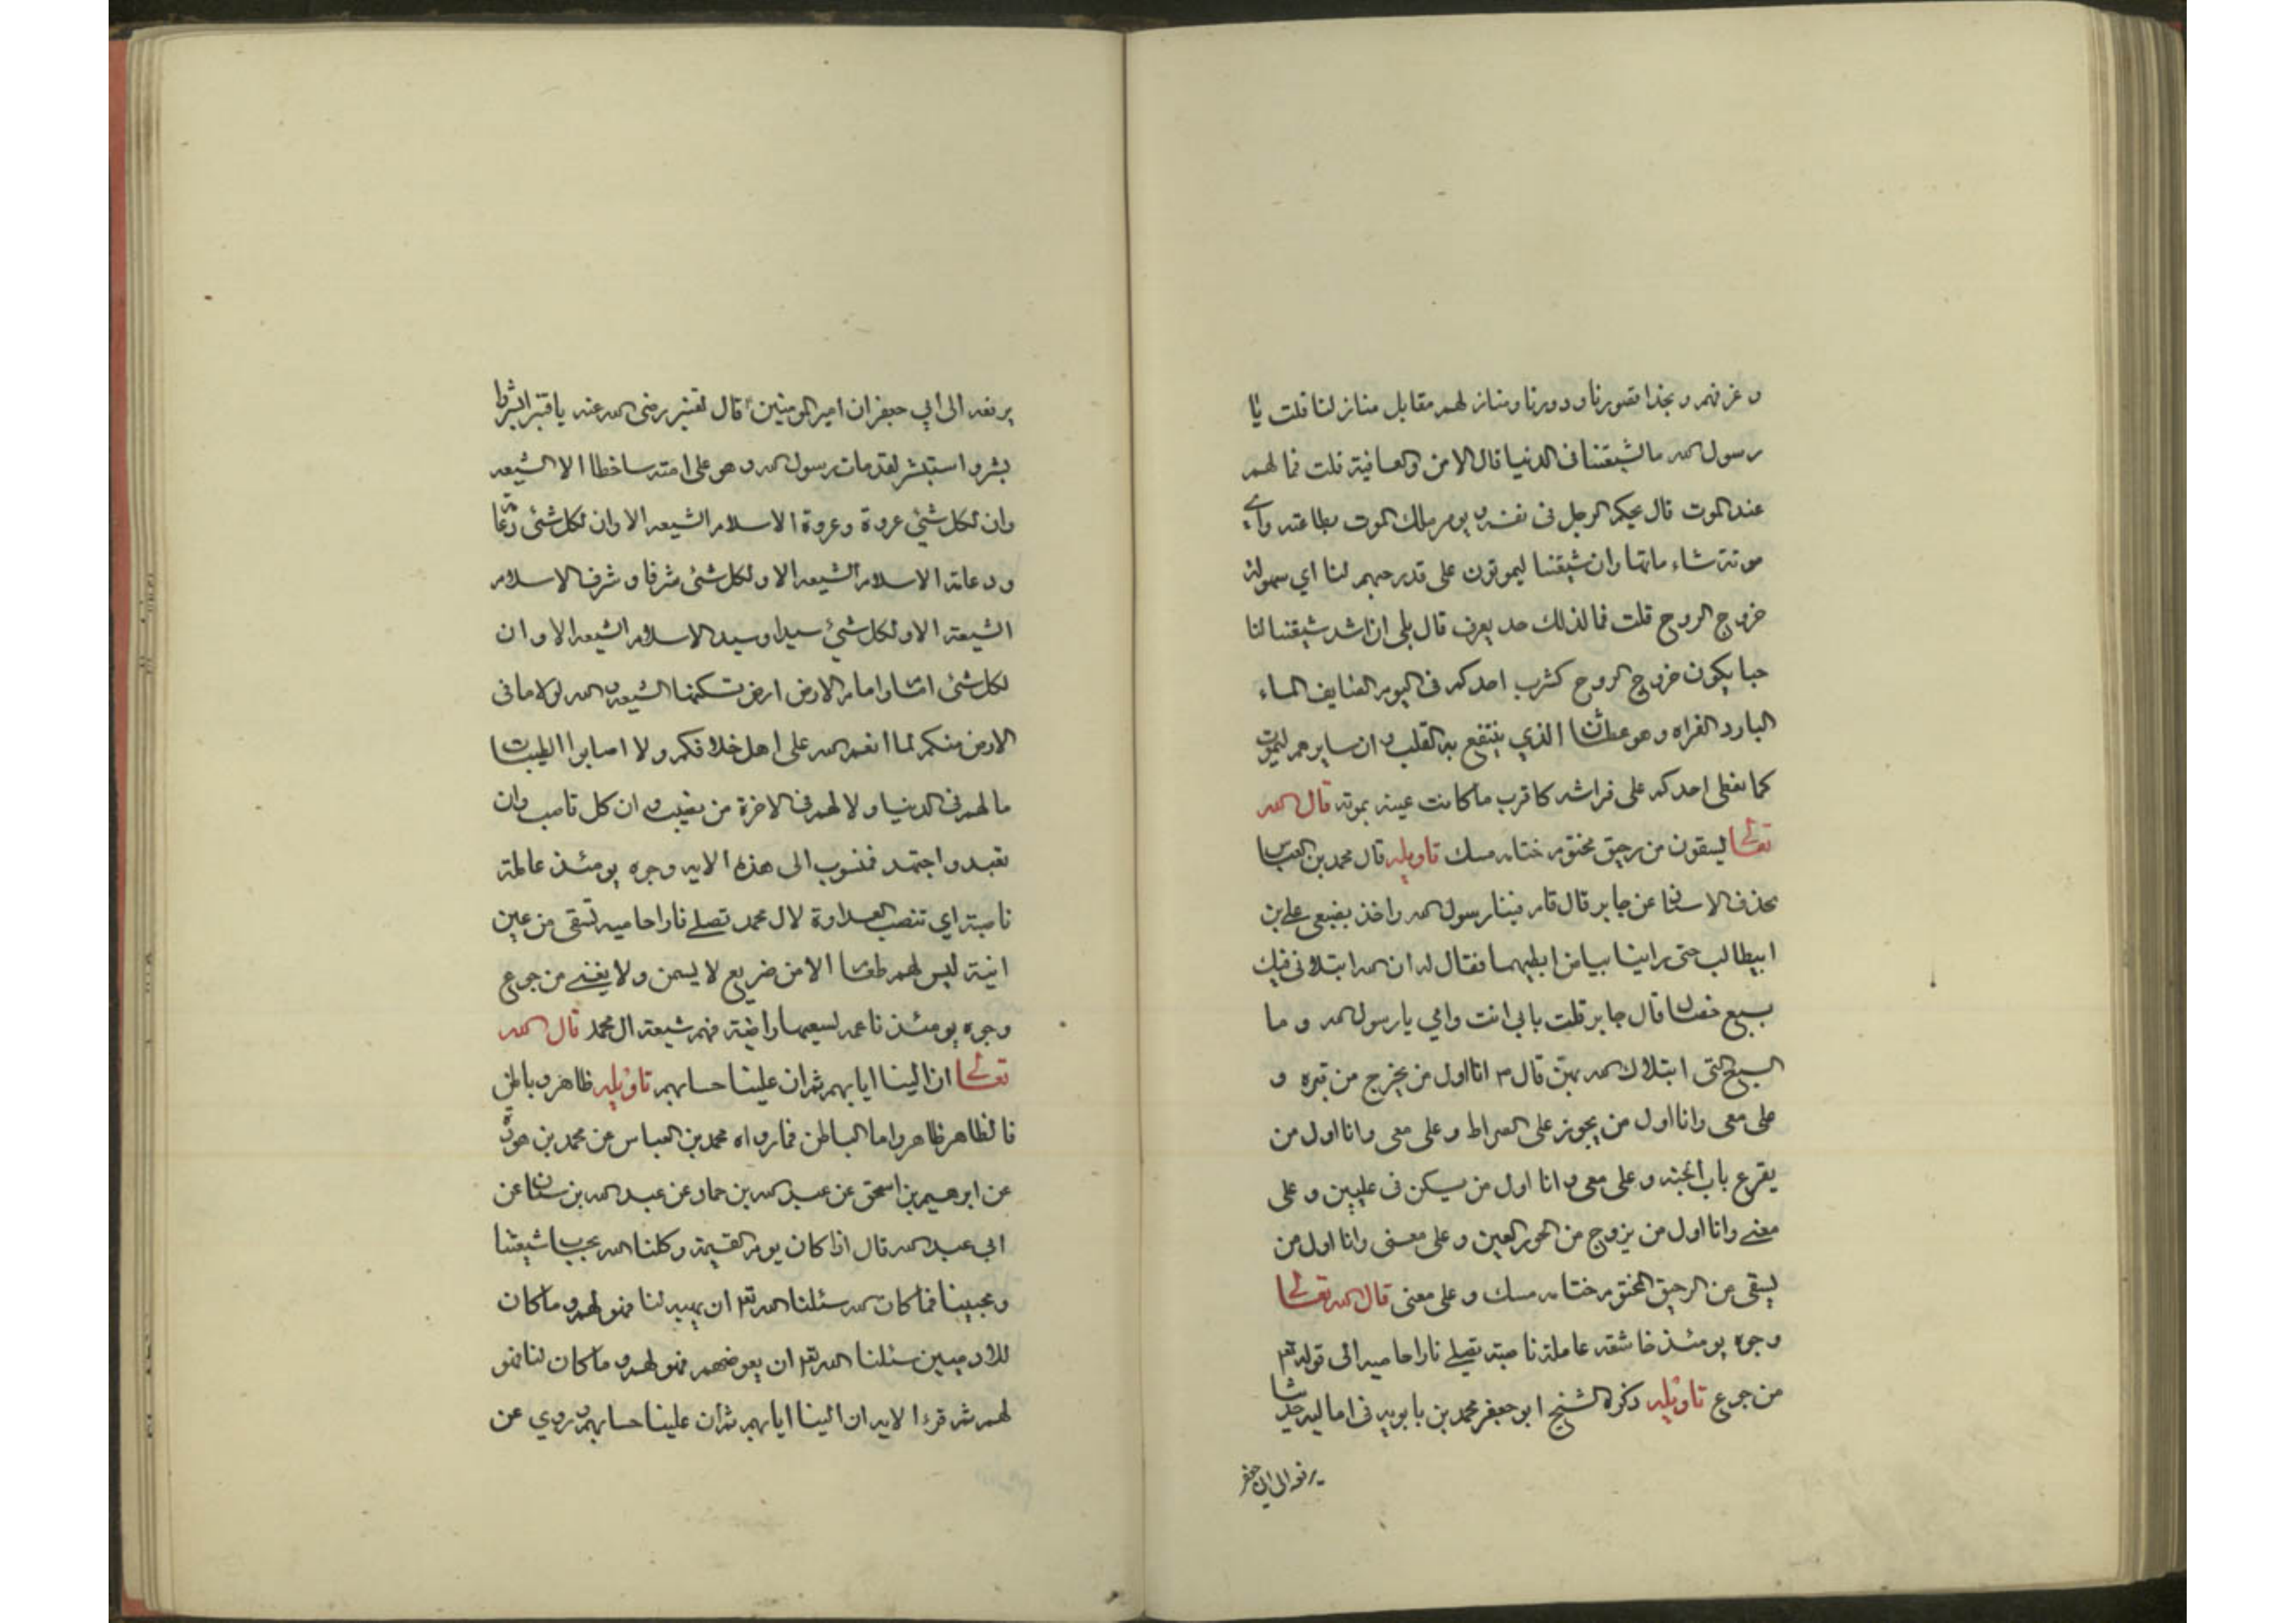 و غرفهم و بحذا قصورنا و دورنا و منازلهم مقابل منازلنا قلت يا
رسول الله ما لشيعتنا في الدنيا قال الامن والعافية قلت فما لهم
عند الموت قال يحكم الرجل في نفسه و يومر ملك الموت بطاعته واي
موتة شاء ماتها وان شيعتنا ليموتون على قدر حبهم لنا اي سهولة
خروج الروح قلت فما لذلك حد يعرف قال بلى ان اشد شيعتنا لنا
حبا يكون خروج الروح كشرب احدكم في اليوم الصايف الماء
البارد القراه و هو عطشان الذي ينتفع به القلب و ان سايرهم ليموت
كما يغطى احدكم على فراشه كاقرب ما كانت عينه بموته قال الله
تعالى يسقون من رحيق مختوم ختامه مسك تاويله قال محمد بن العباس
بحذف الاسناد عن جابر قال قام فينا رسول الله واخذ بضبعي علي بن
ابيطالب حتى راينا بياض ابطيهما فقال له ان الله ابتلاني فيك
بسبع خصال قال جابر قلت بابي انت وامي يا رسول الله و ما
السبع التي ابتلاك الله بهن قال ٢ انا اول من يخرج من قبره و
على معى وانا اول من يجوز على الصراط و على معى وانا اول من
يقرع باب الجنة و على معى و انا اول من يسكن في عليين و على
معى وانا اول من يزوج من الحور العين و على معى وانا اول من
يسقى من الرحيق المختوم ختامه مسك و على معى قال الله تعالى
وجوه يومئذ خاشعة عاملة ناصبة تصلى نارا حاميه الى قوله تع
من جوع تاويله ذكره الشيخ ابو جعفر محمد بن بابويه في اماليه حديثا
يرفعه الى ابي جعفر
يرفعه الى ابي جعفر ان امير المومنين قال لقنبر رضى الله عنه يا قنبر ابشر و
بشر و استبشر لقد مات رسول الله و هو على امته ساخطا الا الشيعه
وان لكل شئي عروة و عروة الاسلام الشيعه الا وان لكل شئي دعامة
و دعامة الاسلام الشيعه الا و لكل شئي شرفا و شرف الاسلام
الشيعة الا و لكل شيئ سيدا و سيد الاسلام الشيعه الا و ان
لكل شئي اماما و امام الارض ارض تسكنها الشيعه والله لولا ما في
الارض منكم لما انعم الله على اهل خلافكم و لا اصابوا الطيبات
ما لهم في الدنيا و لا لهم في الاخرة من نصيب و ان كل ناصب وان
تعبد و اجتهد فمنسوب الى هذه الايه وجوه يومئذ عاملة
ناصبة اي تنصب العداوة لال محمد تصلى نارا حاميه تسقى من عين
انية ليس لهم طعام الا من ضريع لا يسمن و لا يغني من جوع
وجوه يومئذ ناعمه لسعيها راضية فهم شيعة ال محمد قال الله
تعالى ان الينا ايابهم ثم ان علينا حسابهم تاويله ظاهر و باطن
فالظاهر ظاهر واما الباطن فما رواه محمد بن العباس عن محمد بن هوذة
عن ابرهيم بن اسحق عن عبد الله بن حماد عن عبد الله بن سنان عن
ابي عبد الله قال اذا كان يوم القيمة و كلنا الله بحساب شيعتنا
و محبينا فما كان لله سئلنا الله تع ان يهبه لنا فهو لهم و ما كان
للادميين سئلنا الله تع ان يعوضهم فهو لهم و ما كان لنا فهو
لهم ثم قرء الايه ان الينا ايابهم ثم ان علينا حسابهم و روي عن